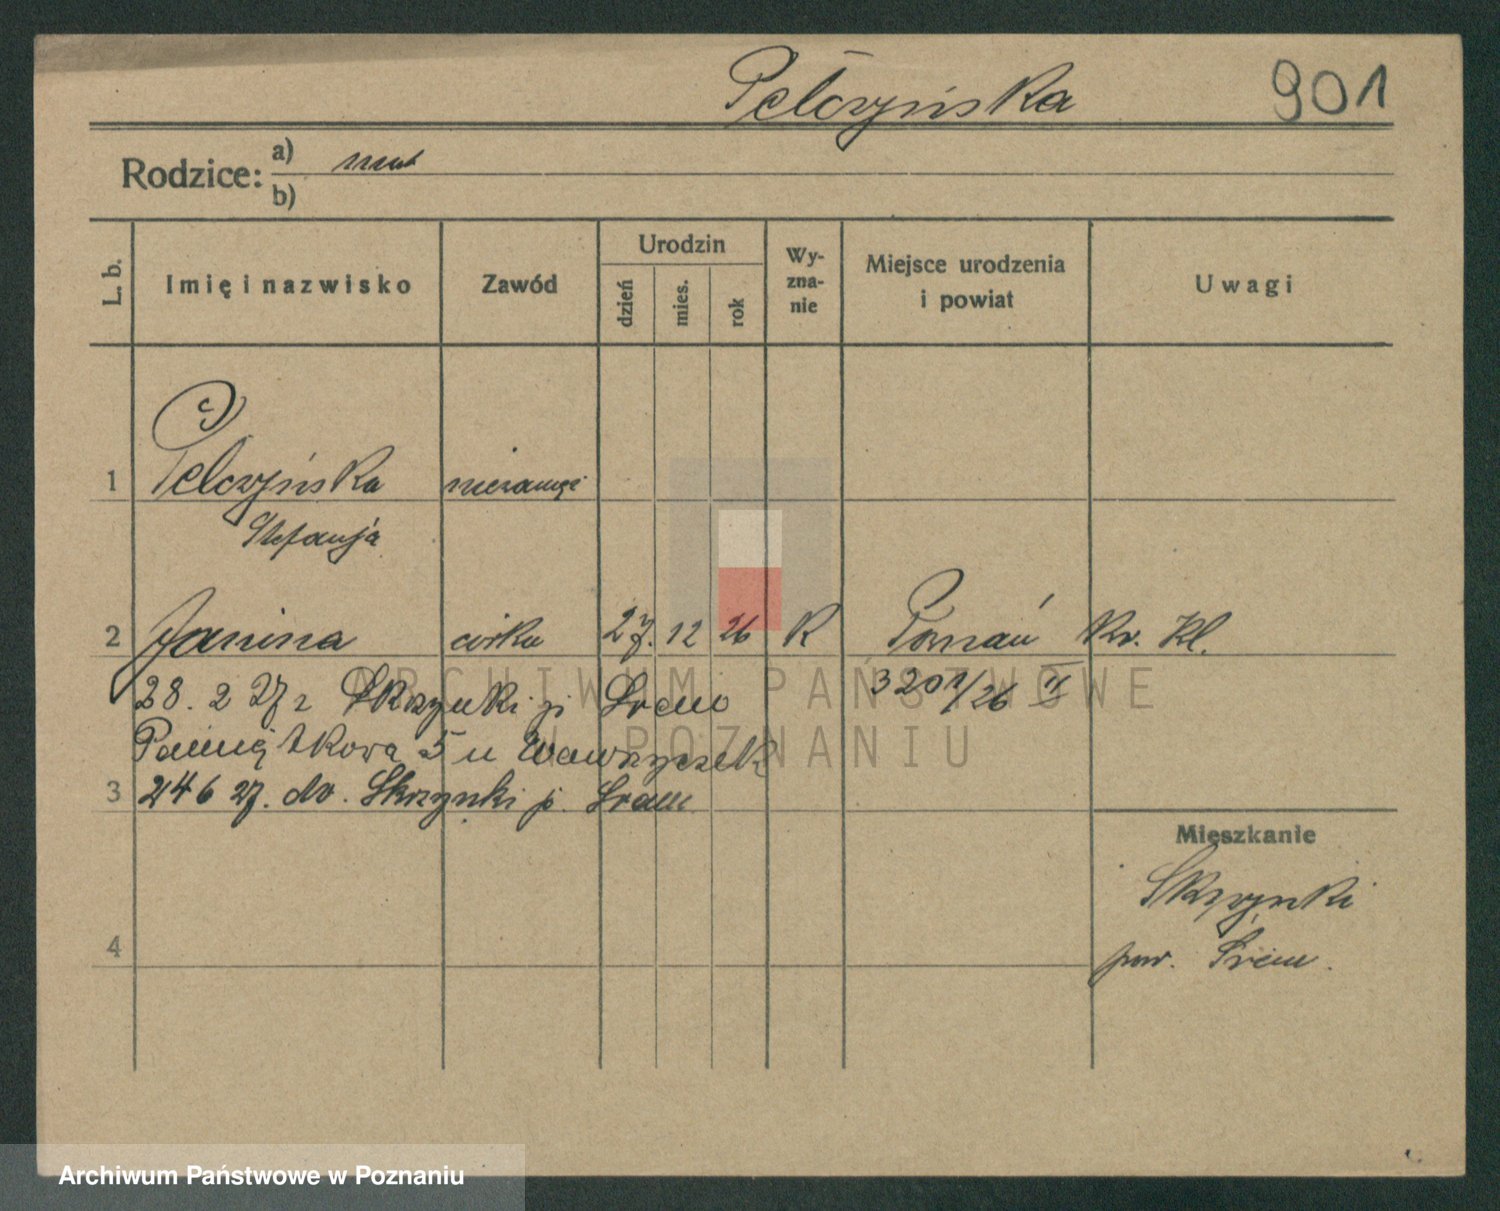 Pełczyńska 901
Rodzice: a)
b)
L. b.
Imię i nazwisko
Zawód
Urodzin
dzień
mies.
rok
Wy-
zna-
nie
Miejsce urodzenia
i powiat
Uwagi
1 Pełczyńska
Stefanja
2 Janina córka 27. 12 26 K Poznań Kr. Kl.
3201/26 II
28. 2 27 z Skrzynki p Śrem
5 u
3 246 27. do. Skrzynki p. Śrem
Mieszkanie
Skrzynki
pow. Śrem.
4
ARCHIWUM PAŃSTWOWE
W POZNANIU
Archiwum Państwowe w Poznaniu